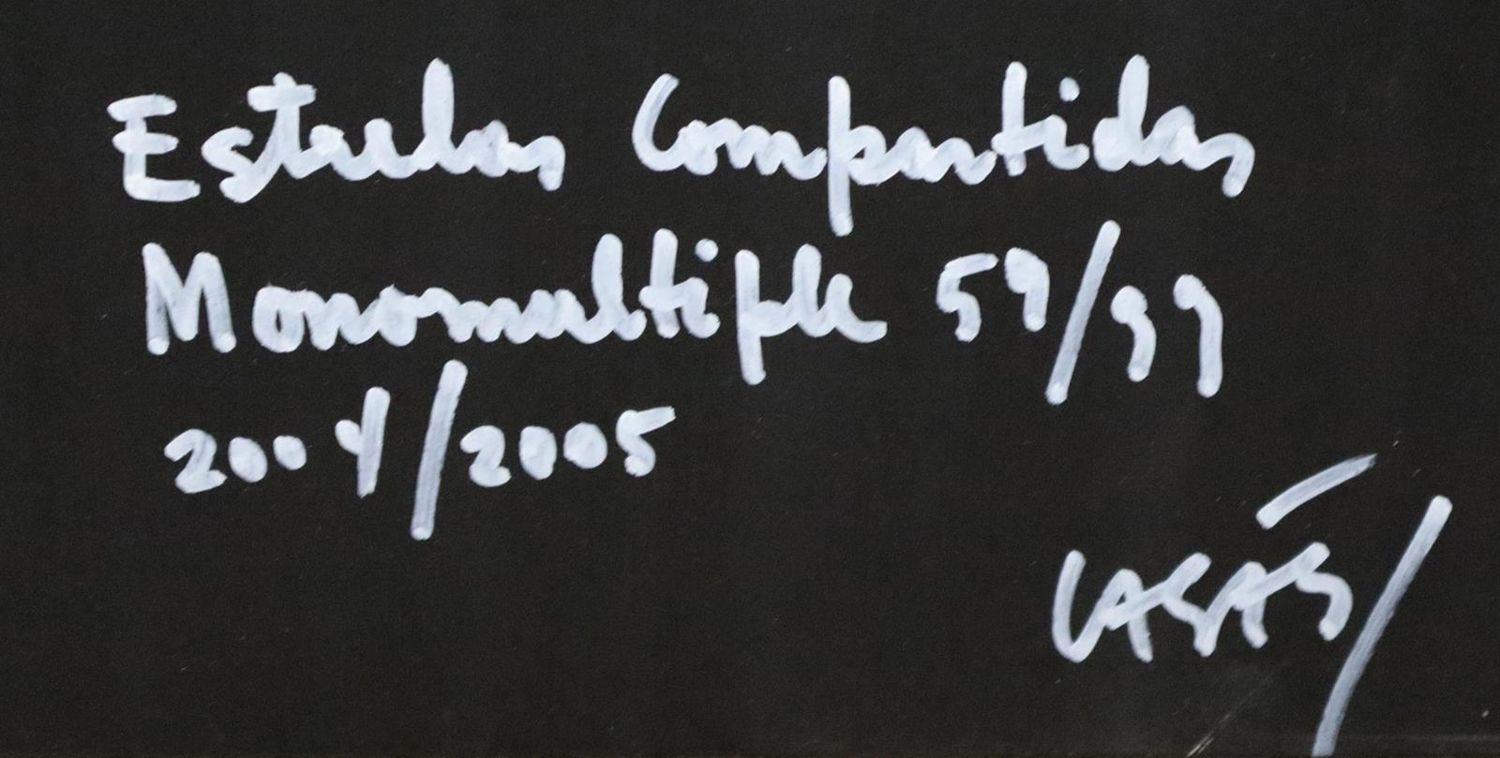 Estrelas Compartidas
Monomultiple 59/99
2004/2005
CASÁS